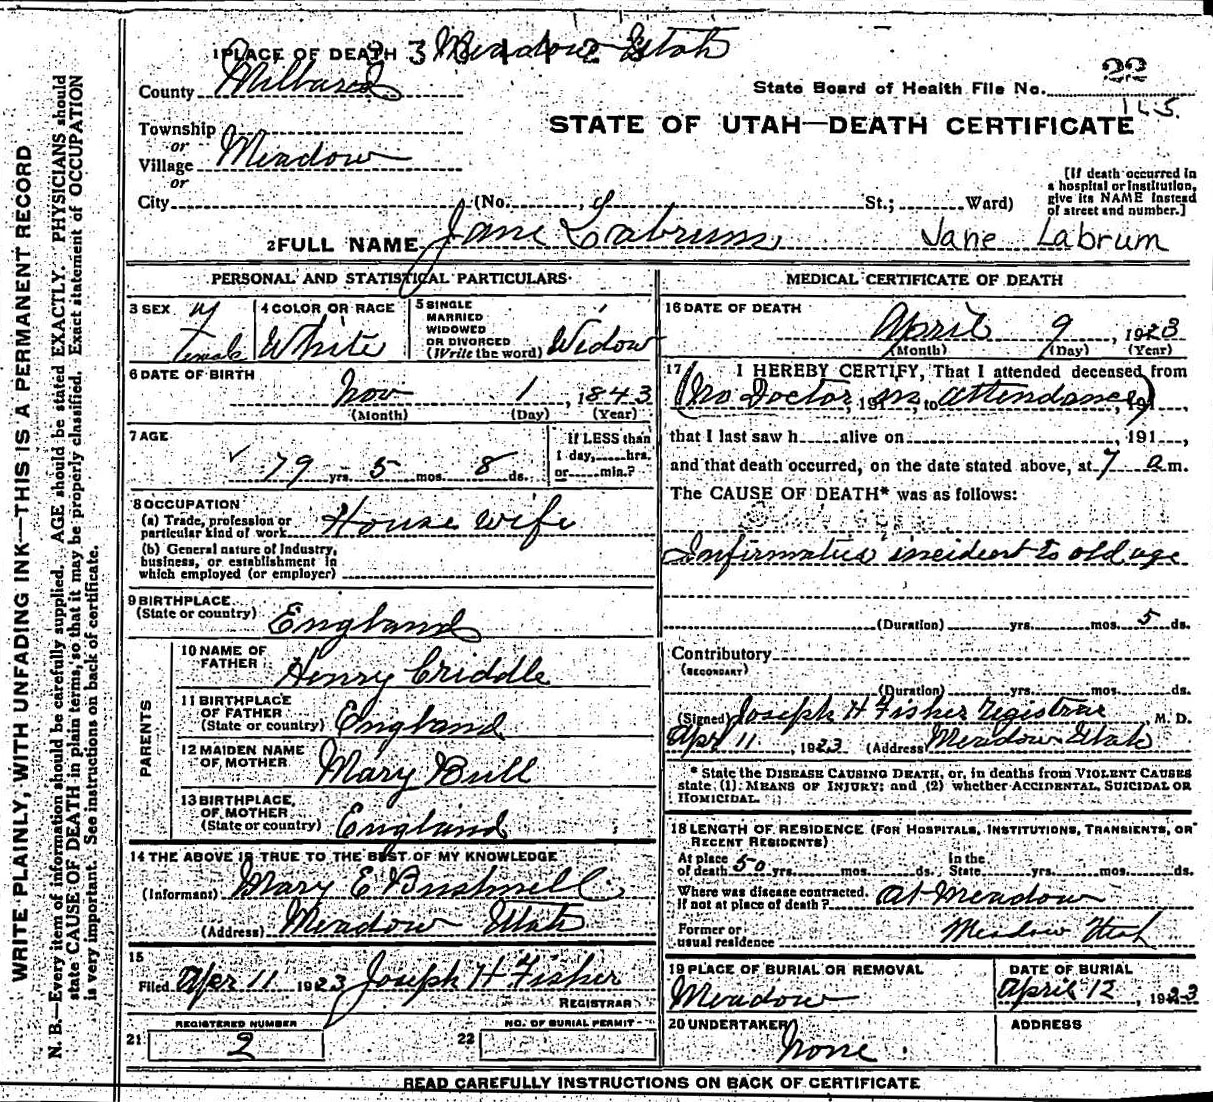 WRITE PLAINLY, WITH UNFADING INK—THIS IS A PERMANENT RECORD
N. B.—Every item of information should be carefully supplied. AGE should be stated EXACTLY. PHYSICIANS should
state CAUSE OF DEATH in plain terms, so that it may be properly classified. Exact statement of OCCUPATION
is very important. See instructions on back of certificate.
1 PLACE OF DEATH Meadow Utah
County Millard
State Board of Health File No. 22
Township
or
Village Meadow
or
City (No. St.; Ward)
STATE OF UTAH—DEATH CERTIFICATE
[If death occurred in
a hospital or institution,
give its NAME instead
of street and number.]
2 FULL NAME Jane Labrum Jane Labrum
PERSONAL AND STATISTICAL PARTICULARS
3 SEX Female
4 COLOR OR RACE White
5 SINGLE
MARRIED
WIDOWED
OR DIVORCED
(Write the word) Widow
6 DATE OF BIRTH
Nov 1, 1843
(Month) (Day) (Year)
7 AGE
79 yrs. 5 mos. 8 ds.
If LESS than
1 day, hrs.
or min.?
8 OCCUPATION
(a) Trade, profession or
particular kind of work House wife
(b) General nature of Industry,
business, or establishment in
which employed (or employer)
9 BIRTHPLACE
(State or country) England
PARENTS
10 NAME OF
FATHER Henry Criddle
11 BIRTHPLACE
OF FATHER
(State or country) England
12 MAIDEN NAME
OF MOTHER Mary Bull
13 BIRTHPLACE
OF MOTHER
(State or country) England
14 THE ABOVE IS TRUE TO THE BEST OF MY KNOWLEDGE
(Informant) Mary E Bushnell
(Address) Meadow Utah
15
Filed Apr 11 1923 Joseph H Fisher
REGISTRAR
21 REGISTERED NUMBER
2
22 NO. OF BURIAL PERMIT
MEDICAL CERTIFICATE OF DEATH
16 DATE OF DEATH
April 9, 1923
(Month) (Day) (Year)
17 I HEREBY CERTIFY, That I attended deceased from
(No Doctor, 191 in, to attendance) 191
that I last saw h alive on , 191 ,
and that death occurred, on the date stated above, at 7 a m.
The CAUSE OF DEATH* was as follows:
Infirmaties incident to old age
(Duration) yrs. mos. 5 ds.
Contributory
(SECONDARY)
(Duration) yrs. mos. ds.
(Signed) Joseph H Fisher registrar M. D.
Apr 11, 1923 (Address) Meadow Utah
* State the DISEASE CAUSING DEATH, or, in deaths from VIOLENT CAUSES
state (1) MEANS OF INJURY; and (2) whether ACCIDENTAL, SUICIDAL OR
HOMICIDAL.
18 LENGTH OF RESIDENCE (FOR HOSPITALS, INSTITUTIONS, TRANSIENTS, OR
RECENT RESIDENTS)
At place
of death 50 yrs. mos. ds.
In the
State yrs. mos. ds.
Where was disease contracted,
if not at place of death? At Meadow
Former or
usual residence Meadow Utah
19 PLACE OF BURIAL OR REMOVAL
Meadow
DATE OF BURIAL
April 12, 1923
20 UNDERTAKER
None
ADDRESS
READ CAREFULLY INSTRUCTIONS ON BACK OF CERTIFICATE